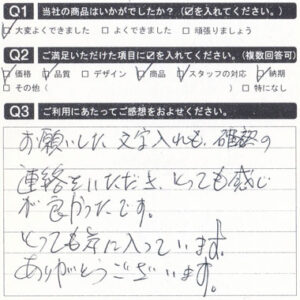 Q1 当社の商品はいかがでしたか？(☑を入れてください。)
☑大変よくできました □よくできました □頑張りましょう
Q2 ご満足いただけた項目に☑を入れてください。(複数回答可)
☑価格 ☑品質 □デザイン ☑商品 ☑スタッフの対応 ☑納期
□その他( ) □特になし
Q3 ご利用にあたってご感想をおよせください。
お願いした文字入れも、確認の
連絡をいただき、とっても感じ
が良かったです。
とっても気に入っています。
ありがとうございます。